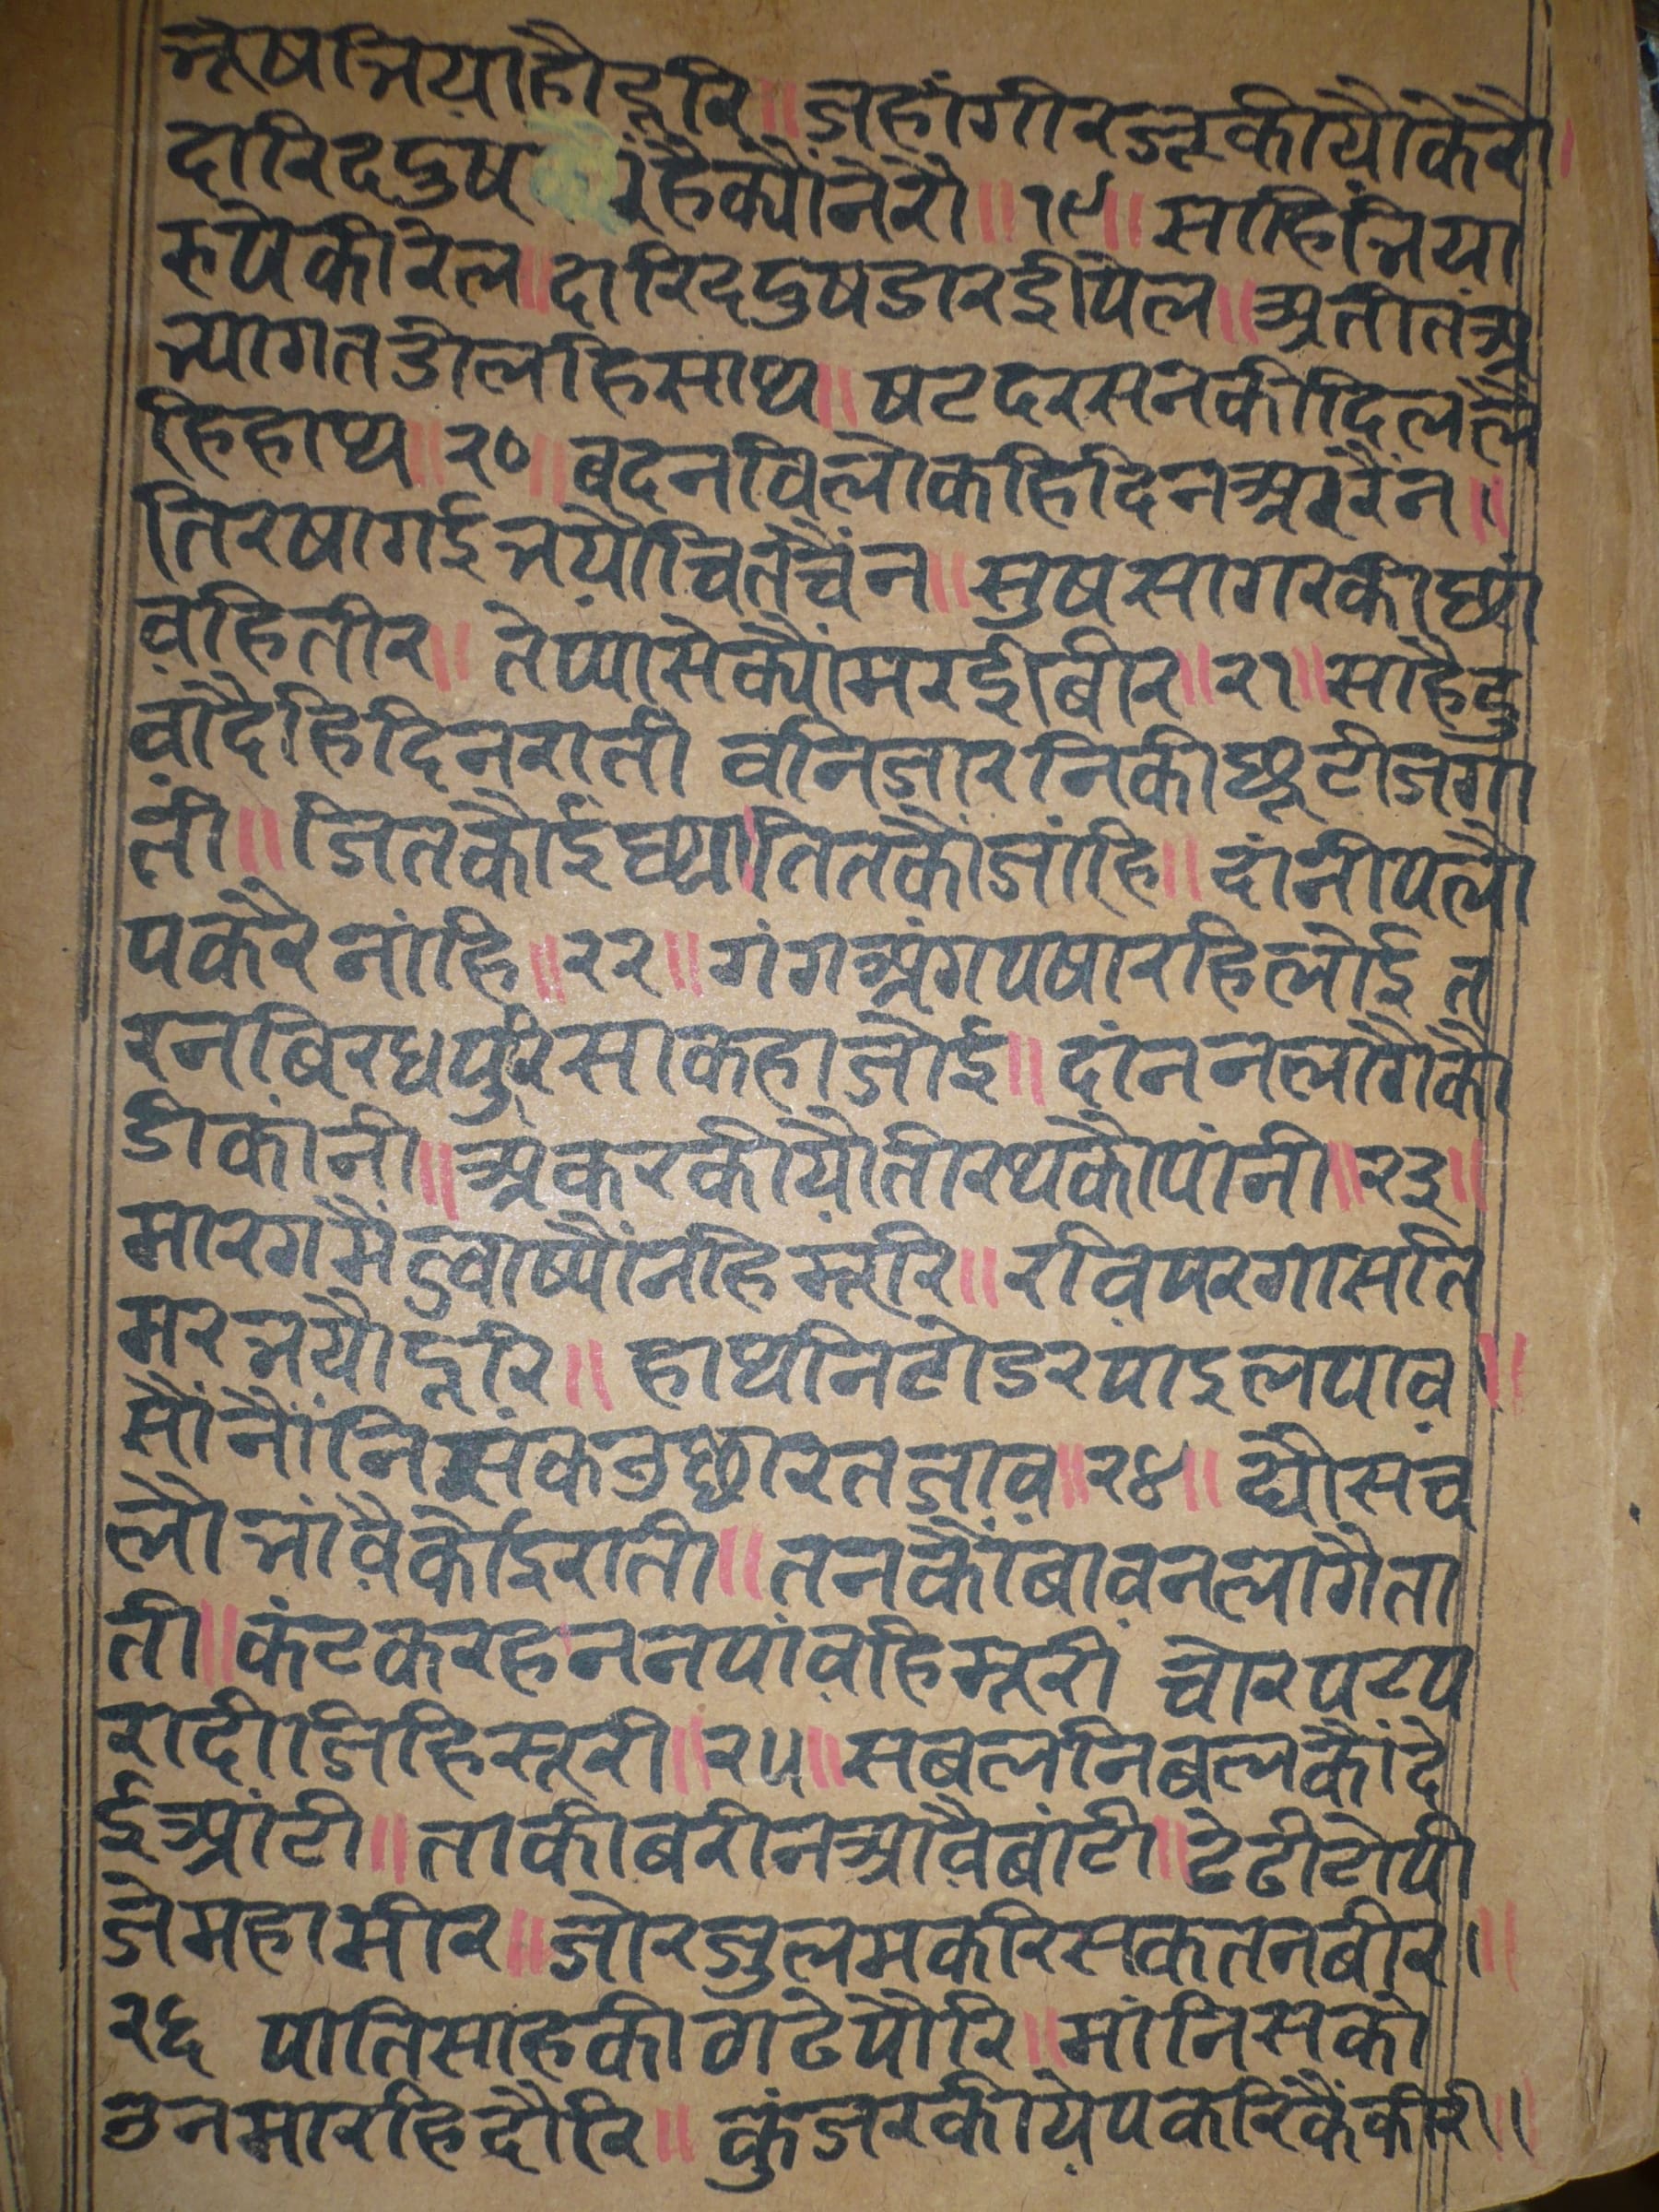 भूषभयाहौदूरि॥जहांगीरजूकीयौकेरौ।
दारिददुष रहैक्यौंनेरौ॥१९॥साहिंभिया
रुपेकीरेल॥दारिददुषडारडीपेल॥अतीतअ
भ्यागतडीलहिसाथ॥षटदरसनकीदिललै
हिहाथ॥२०॥बदनविलोकहिदिनअररैंन॥
तिरषागईभयौचितचैंन॥सुषसागरकीछां
वहितीर॥तेप्यासेक्यौंमरईबीर॥२१॥साहैदु
वादैहिदिनराती वनिजारनिकीछूटीजगा
ती॥जितकौईछ्यातितकौजांहि॥दांनीपलौ
पकरैनांहि॥२२॥गंगअंगपषारहिलोई त
रनबिरधपुरिसाकहाजोई॥दांननलागैकौ
डीकांनी॥अकरकीयौतीरथकौपांनी॥२३॥
मारगमैंज्वाष्यौंनहिमूरि॥रविपरगासति
मरभयौदूरि॥हाथनिटोडरपाइलपाव॥
सौंनौंनिसंकउछारतजाव॥२४॥द्यौसच
लौभांवैकोईराती॥तनकौंबावनलागैता
ती॥कंटकरहननपांवहिमूरी चोरपटप
रादीजिहिसूरी॥२५॥सबलनिबलकौंदे
ईआंटी॥ताकीबरीनआवैबांटी॥टेढीटोपी
जेमहामीर॥जोरजुलमकरिसकतनबीर॥
२६ पातिसाहकीगढेपौरि॥मांनिसको
उनमारहिदौरि॥कुंजरकीयेपकरिकैंकीरी॥